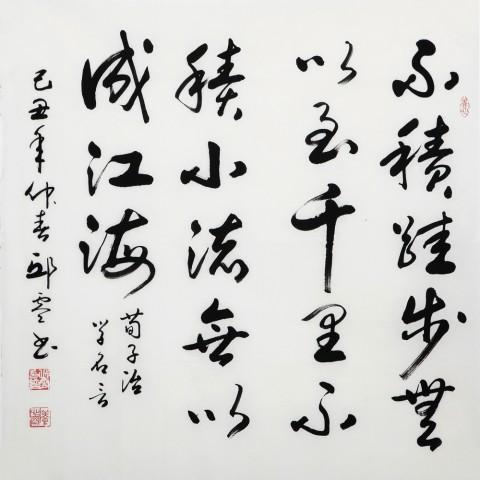 不積跬步無
以至千里不
積小流無以
成江海
荀子治
学名言
己丑年仲春邱书